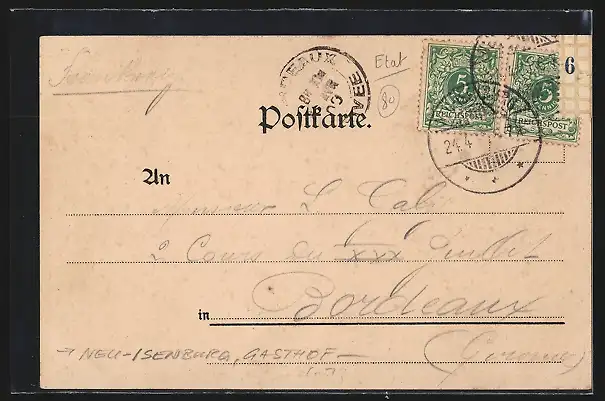 Etat
80
6
5
REICHSPOST
5
REICHSPOST
24.4
Postkarte.
An
Monsieur L
2 Cours du xxx Juillet
in Bordeaux
→ NEU-ISENBURG, GASTHOF – (Gironde)